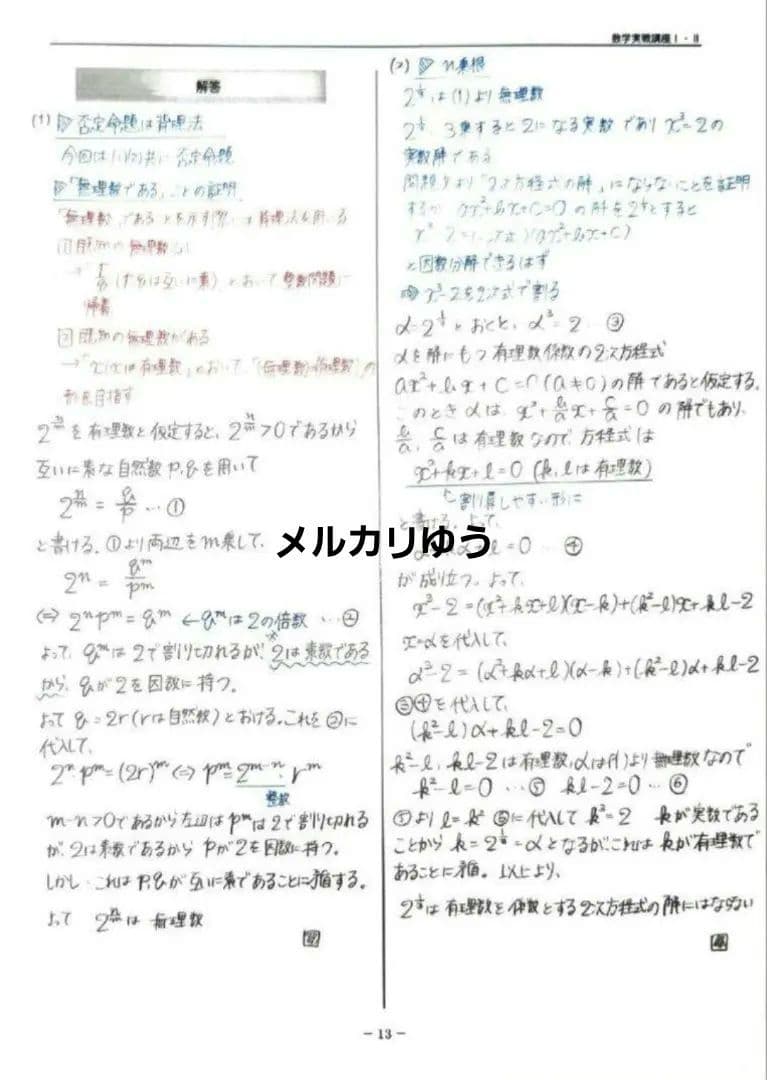 数学実戦講座Ⅰ・Ⅱ
解答
(1) 否定命題は背理法
今回は(1)(2)共に否定命題
「無理数である」ことの証明
「無理数」であることを示す際は背理法を用いる
① 既知の無理数なし
(たがは互いに素)とおいて整数問題に
帰着
② 既知の無理数がある
→「xは有理数」とおいて、「(無理数)=(有理数)」の
形を目指す
2^{n/m}を有理数と仮定すると、2^{n/m}>0であるから
互いに素な自然数p,qを用いて
2^{n/m} = q/p … ①
と書ける。①より両辺をm乗して、
2^n = q^m/p^m
⇔ 2^n p^m = q^m ←q^mは2の倍数 … ②
よって、q^mは2で割り切れるが、2は素数である
から、qが2を因数に持つ。
よって q=2r(rは自然数)とおける。これを②に
代入して、
2^n p^m=(2r)^m ⇔ p^m=2^{m-n}・r^m
整数
m-n>0であるから左辺はp^mは2で割り切れる
が、2は素数であるから pが2を因数に持つ。
しかし、これはp,qが互いに素であることに矛盾する。
よって 2^{n/m}は無理数
終
(2) n乗根
2^{1/3}は(1)より無理数
2^{1/3} 3乗すると2になる実数であり x^3=2の
実数解である
問題文より「2次方程式の解」にならないことを証明
するが ax^2+bx+c=0の解を2^{1/3}とすると
(ax^2+bx+c)
と因数分解できるはず
⇒ x^3-2を2次式で割る
α=2^{1/3}とおくと、α^3=2 … ③
αを解にもつ有理数係数の2次方程式
ax^2+bx+c=0(a≠0)の解であると仮定する。
このときαは、x^2+b/a x+c/a=0の解でもあり、
b/a, c/aは有理数なので、方程式は
x^2+kx+l=0 (k,lは有理数)
割り算しやすい形に
と書ける。よって、
メルカリゆう
=0 … ④
が成り立つ。よって、
x^3-2=(x^2+kx+l)(x-k)+(k^2-l)x+kl-2
x=αを代入して、
α^3-2=(α^2+kα+l)(α-k)+(k^2-l)α+kl-2
③④を代入して、
(k^2-l)α+kl-2=0
k^2-l, kl-2は有理数,αは(1)より無理数なので
k^2-l=0 … ⑤ kl-2=0 … ⑥
⑤より l=k^2 ⑥に代入して k^3=2 kが実数である
ことから k=2^{1/3}=αとなるが、これはkが有理数で
あることに矛盾。以上より、
2^{1/3}は有理数を係数とする2次方程式の解にはならない
終
- 13 -